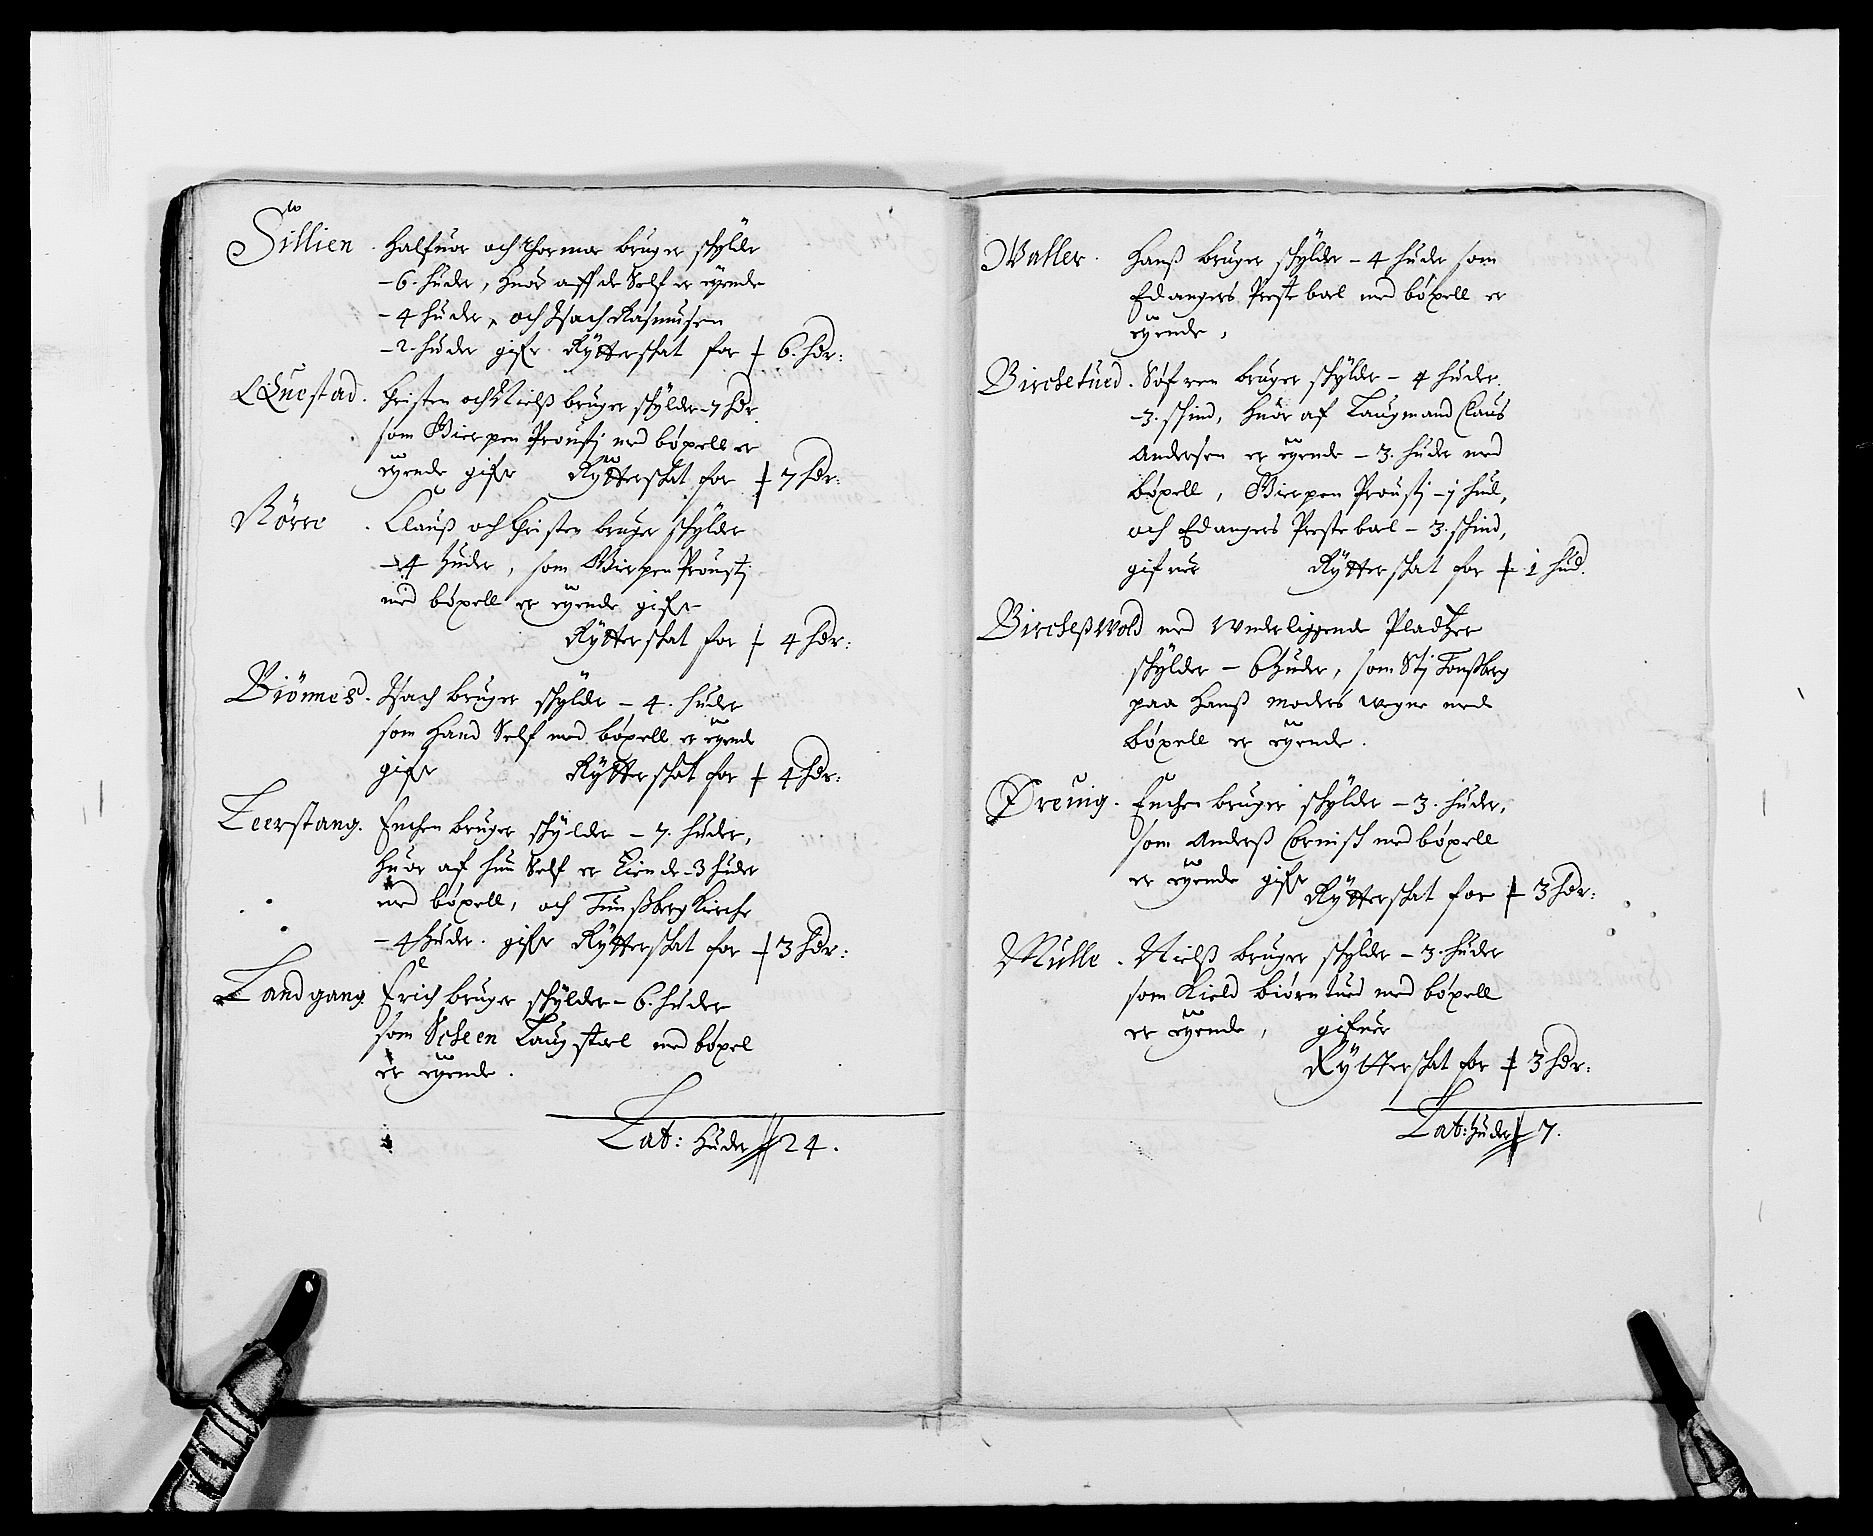 Sillien. Halfuor och Thormor bruger schylder
- 6. huder, huor aff de Self er eyende
- 4 huder, och Isach Rasmusen
- 2. huder gifr. Rytterschat for ╪ 6. hdr:
Questad. Christen och Nielß bruger schylder - 7 hdr
som Gierpen Proustj med böxell er
eyende gifr Rytterschat for ╪ 7 hdr:
Rörre. Clauß och Christen bruger schylder
- 4 huder, som Gierpen Proustj
med böxell er eyende gifr
Rytterschat for ╪ 4 hdr:
Biönnes. Isach bruger schylder - 4. huder
som hand Self med böxell er eyende
gifr Rytterschat for ╪ 4 hdr:
Leerstang. Enchen bruger schylder - 7. huder,
huor af hun Self er Eiende - 3 huder
med böxell, och Tunßberg Kirche
- 4 huder. gifr Rytterschat for ╪ 3 hdr:
Landgang Erich bruger schylder - 6. huder
som Scheen Laugstoel med böxel
er eyende.
Lat: huder ╪ 24.
Waller. Hanß bruger schylder - 4 huder som
Edangers Preste boel med böxell er
eyende,
Birchetued. Söfren bruger schylder - 4 huder
- 3. schind, huor af Laugmand Claus
Andersen er eyende - 3. huder med
böxell, Gierpen Proustj - 1 hud,
och Edangers Preste boel - 3. schind,
gifuer Rytterschat for ╪ 1 hud.
Bircheßwold med Wnderliggende Pladtzer
schylder - 6 huder, som Stj Tonßberg
paa Hanß Moders wegne med
böxell er eyende.
Greuig. Enchen bruger schylder - 3. huder,
som Anderß Cornisch med böxell
er eyende gifr Rytterschat for ╪ 3 hdr:
Mulle. Nielß bruger schylder - 3. huder
som Kield Biörntued med böxell
er eyende, gifuer
Rytterschat for ╪ 3 hdr:
Lat: huder ╪ 7.